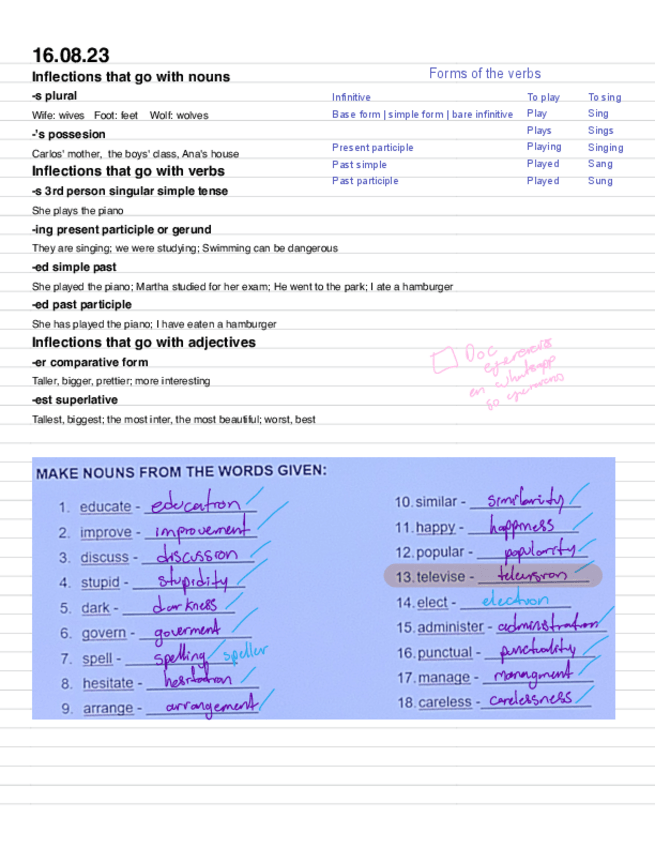 16.08.23
Inflections that go with nouns
-s plural
Wife: wives Foot: feet Wolf: wolves
-'s possesion
Carlos' mother, the boys' class, Ana's house
Inflections that go with verbs
-s 3rd person singular simple tense
She plays the piano
-ing present participle or gerund
They are singing; we were studying; Swimming can be dangerous
-ed simple past
She played the piano; Martha studied for her exam; He went to the park; I ate a hamburger
-ed past participle
She has played the piano; I have eaten a hamburger
Inflections that go with adjectives
-er comparative form
Taller, bigger, prettier; more interesting
-est superlative
Tallest, biggest; the most inter, the most beautiful; worst, best
Forms of the verbs
Infinitive To play To sing
Base form | simple form | bare infinitive Play Sing
Plays Sings
Present participle Playing Singing
Past simple Played Sang
Past participle Played Sung
Doc
ejercicios
en whatsapp
50 ejercicios
MAKE NOUNS FROM THE WORDS GIVEN:
1. educate - education
2. improve - improvement
3. discuss - discussion
4. stupid - stupidity
5. dark - darkness
6. govern - goverment
7. spell - spelling speller
8. hesitate - hesitation
9. arrange - arrangement
10. similar - similarity
11. happy - happiness
12. popular - popularity
13. televise - television
14. elect - election
15. administer - administration
16. punctual - punctuality
17. manage - managment
18. careless - carelessness